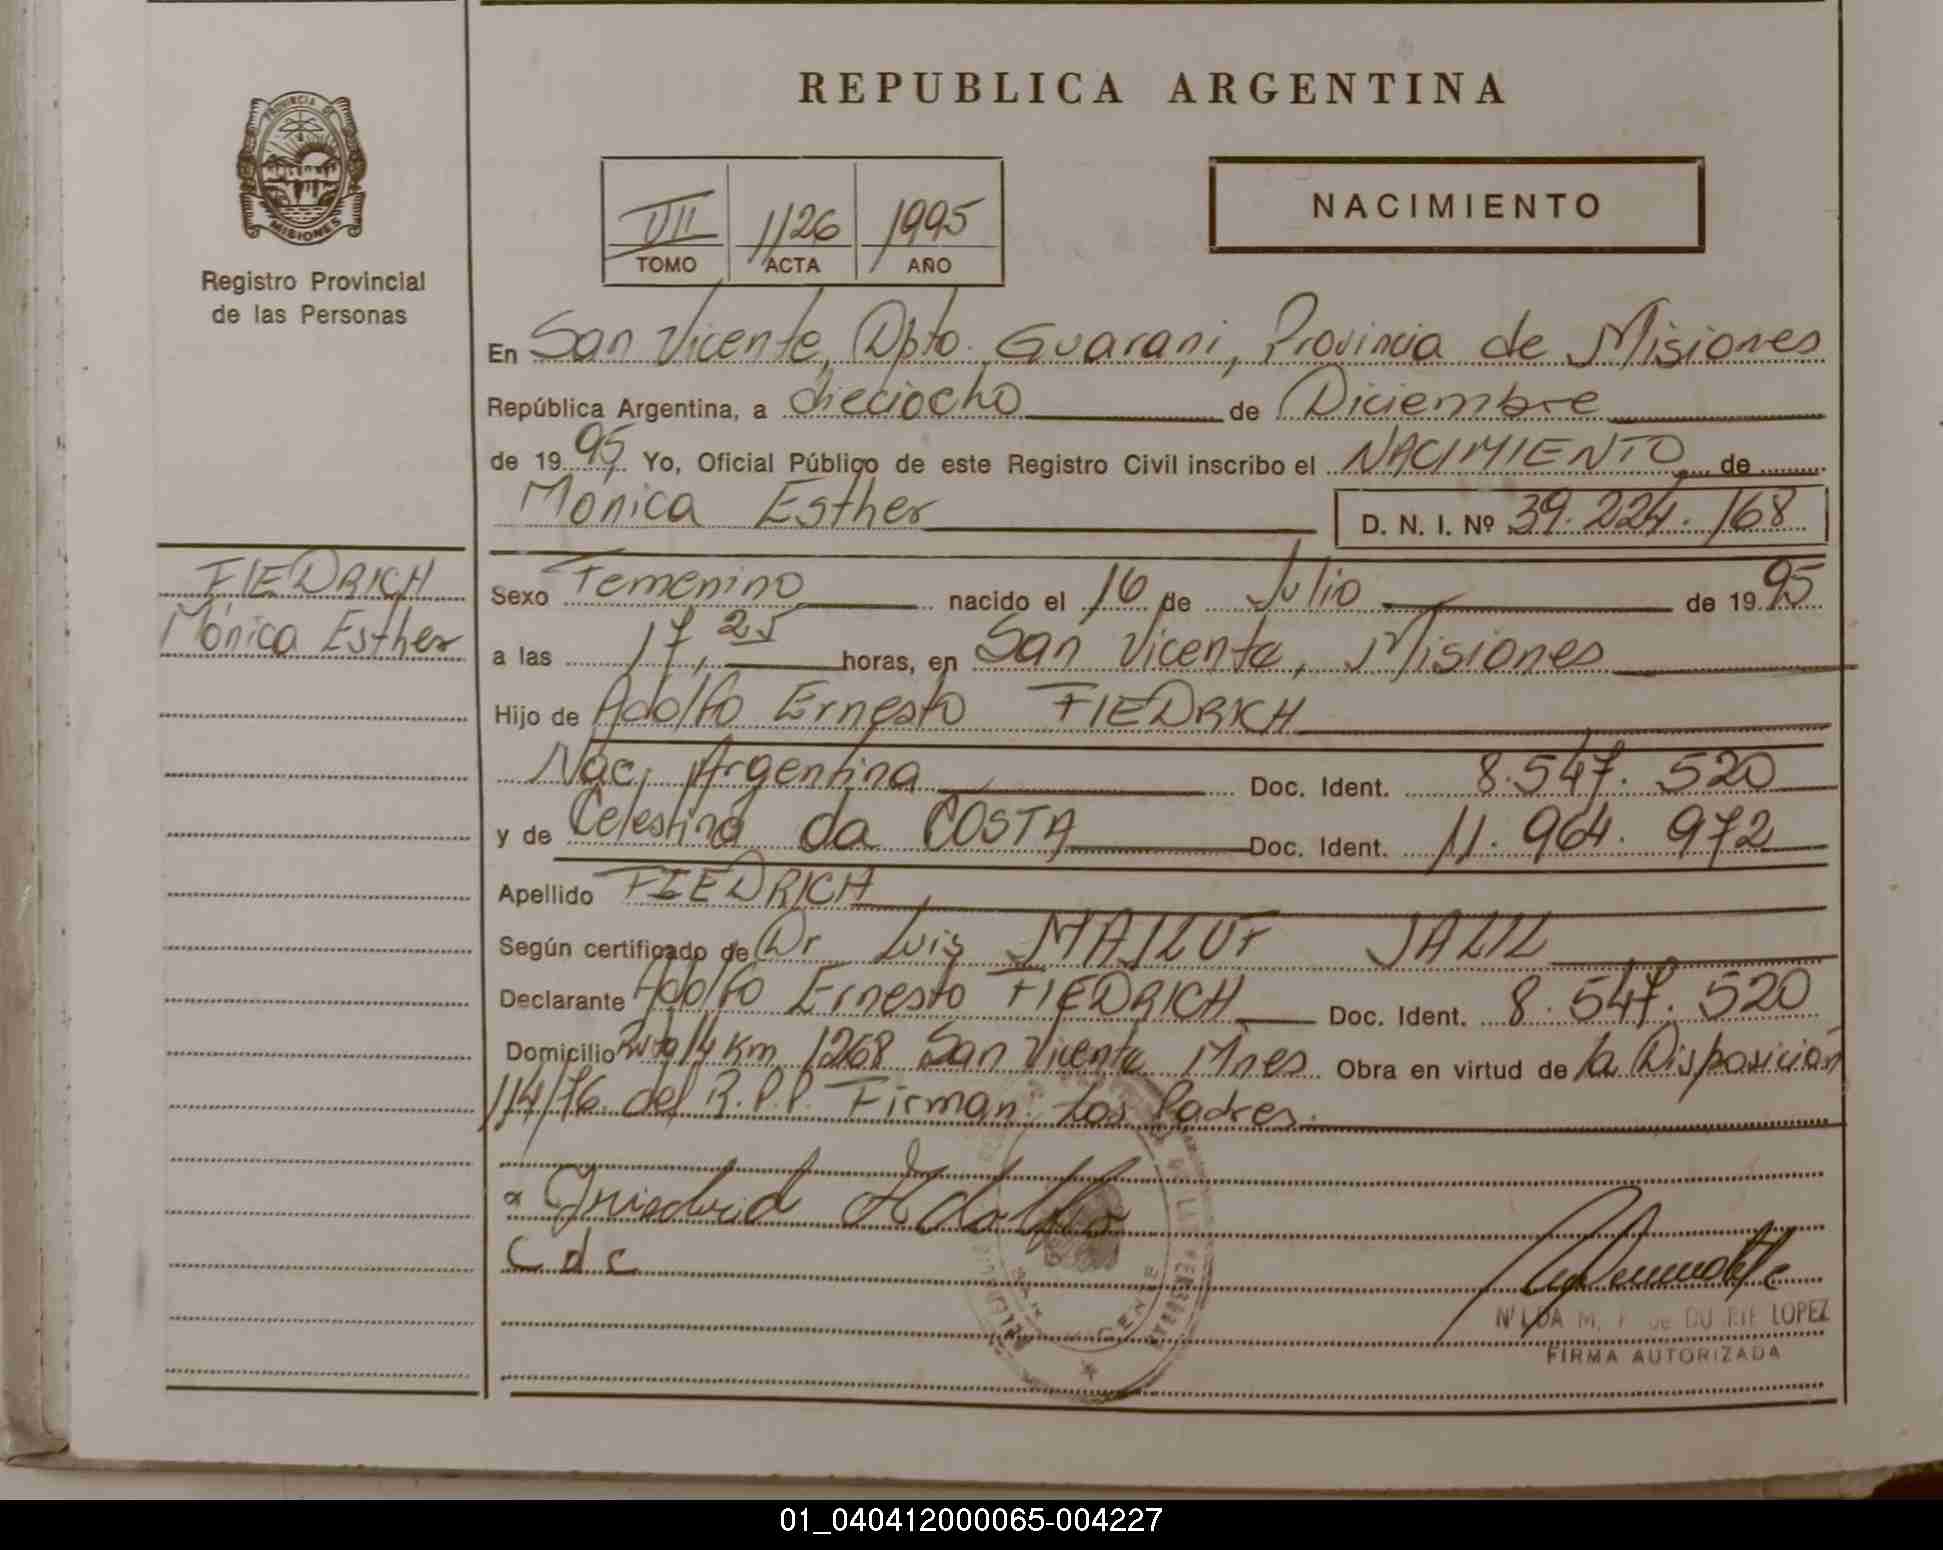 REPUBLICA ARGENTINA
PROVINCIA DE
MISIONES
Registro Provincial
de las Personas
VII 1126 1995
TOMO ACTA AÑO
NACIMIENTO
En San Vicente, Dpto. Guarani, Provincia de Misiones
República Argentina, a dieciocho de Diciembre
de 1995 Yo, Oficial Público de este Registro Civil inscribo el NACIMIENTO de
Monica Esther D. N. I. Nº 39.224.168
FIEDRICH
Mónica Esther
Sexo Femenino nacido el 16 de Julio de 1995
a las 17,25 horas, en San Vicente, Misiones
Hijo de Adolfo Ernesto FIEDRICH
Nac. Argentina Doc. Ident. 8.547.520
y de Celestina da COSTA Doc. Ident. 11.964.972
Apellido FIEDRICH
Según certificado de Dr Luis MAILUF JALIL
Declarante Adolfo Ernesto FIEDRICH Doc. Ident. 8.547.520
Domicilio Ruta 14 Km 1268 San Vicente Mnes. Obra en virtud de la Disposición
114/76 del R.P.P. Firman: Los Padres.
Friedrich Adolfo
C d C
NILDA M. de LOPEZ
FIRMA AUTORIZADA
01_040412000065-004227